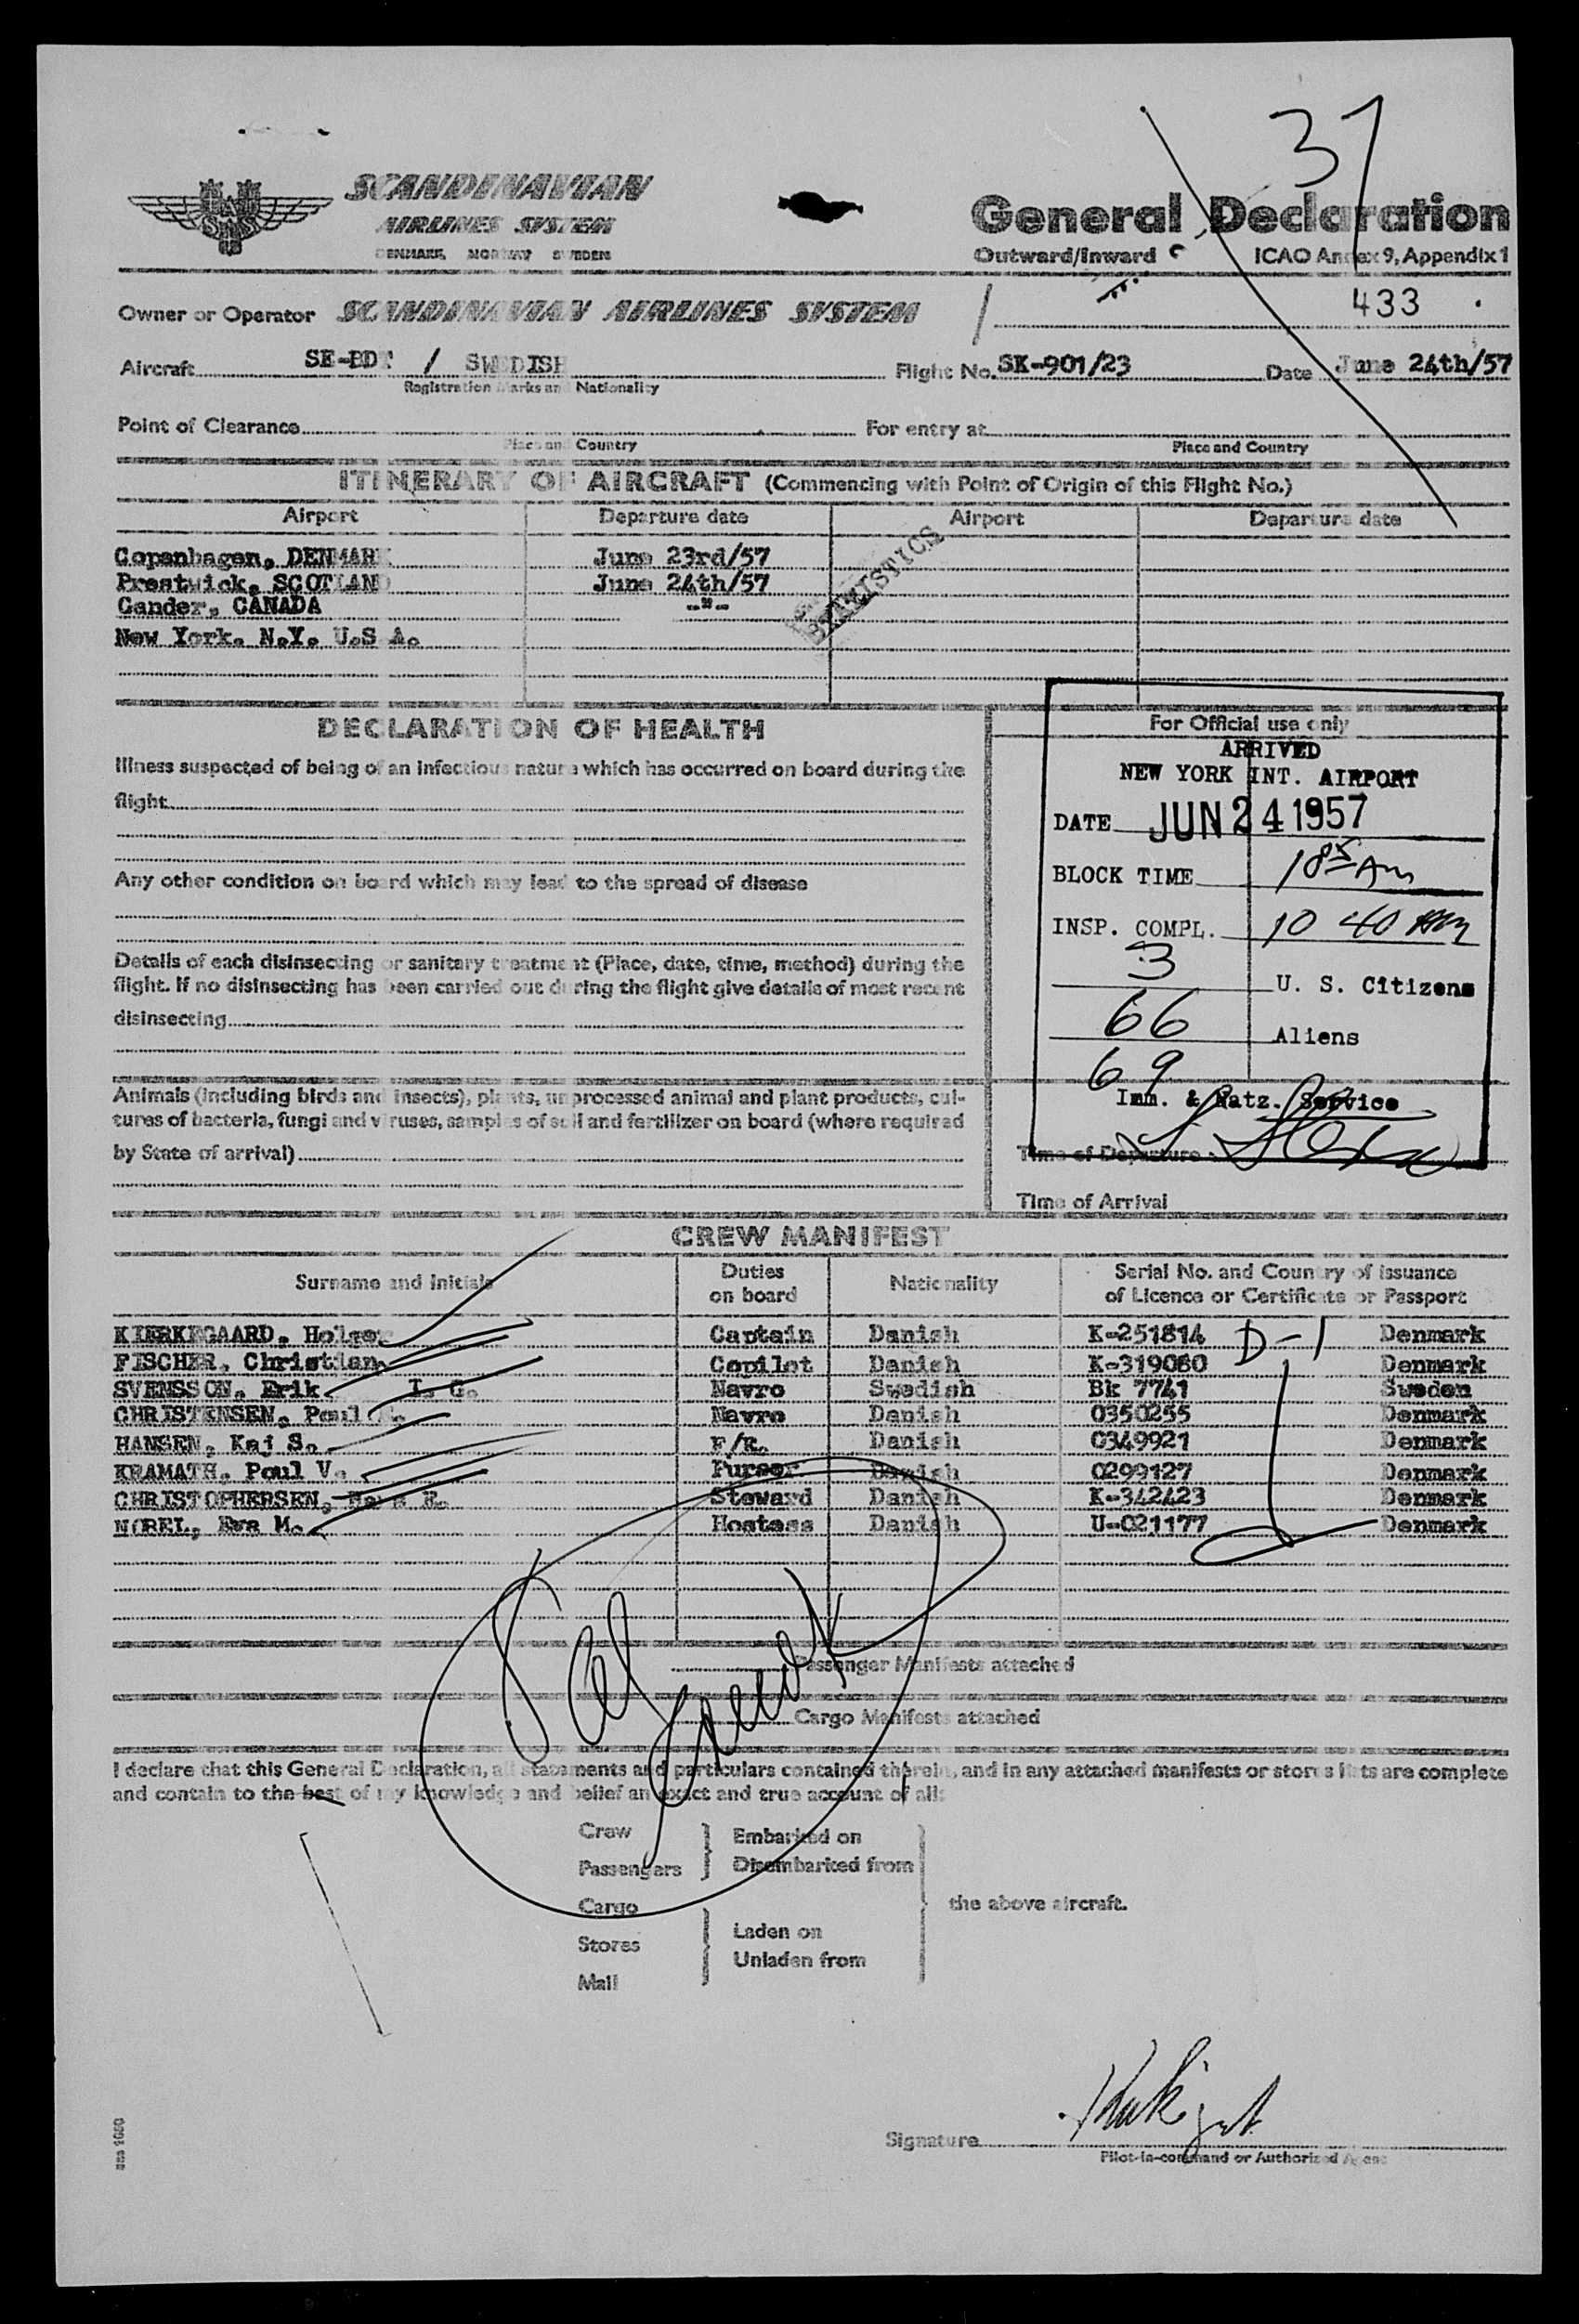 37
SCANDINAVIAN
AIRLINES SYSTEM
DENMARK NORWAY SWEDEN
General Declaration
Outward/Inward
ICAO Annex 9, Appendix 1
Owner or Operator SCANDINAVIAN AIRLINES SYSTEM
433
Aircraft SE-BDT / SWEDISH Flight No. SK-901/23 Date June 24th/57
Registration Marks and Nationality
Point of Clearance For entry at
Place and Country Place and Country
ITINERARY OF AIRCRAFT (Commencing with Point of Origin of this Flight No.)
Airport Departure date Airport Departure date
Copenhagen, DENMARK June 23rd/57
Prestwick, SCOTLAND June 24th/57
Gander, CANADA --"--
New York, N.Y. U.S.A.
STATISTICS
DECLARATION OF HEALTH
Illness suspected of being of an infectious nature which has occurred on board during the
flight
Any other condition on board which may lead to the spread of disease
Details of each disinsecting or sanitary treatment (Place, date, time, method) during the
flight. If no disinsecting has been carried out during the flight give details of most recent
disinsecting
Animals (including birds and insects), plants, unprocessed animal and plant products, cul-
tures of bacteria, fungi and viruses, samples of soil and fertilizer on board (where required
by State of arrival)
For Official use only
ARRIVED
NEW YORK INT. AIRPORT
DATE JUN 24 1957
BLOCK TIME AM
INSP. COMPL. 10 40 AM
3 U. S. Citizens
66 Aliens
69
Imm. & Natz. Service
Time of Departure
Time of Arrival
CREW MANIFEST
Surname and Initials Duties on board Nationality Serial No. and Country of issuance of Licence or Certificate or Passport
KIERKEGAARD, Holger Captain Danish K-251814 D-1 Denmark
FISCHER, Christian Copilot Danish K-319060 Denmark
SVENSSON, Erik I. G. Navro Swedish Bk 7741 Sweden
CHRISTENSEN, Poul Navro Danish 0350255 Denmark
HANSEN, Kaj S. F/E. Danish 0349921 Denmark
KRAMATH, Poul V. Purser Danish 0299127 Denmark
CHRISTOPHERSEN, E. Steward Danish K-342423 Denmark
NOREL, Eva M. Hostess Danish U-021177 Denmark
Passenger Manifests attached
Cargo Manifests attached
I declare that this General Declaration, all statements and particulars contained therein, and in any attached manifests or stores lists are complete
and contain to the best of my knowledge and belief an exact and true account of all:
Crew
Passengers
Embarked on
Disembarked from
Cargo
Stores
Mail
Laden on
Unladen from
the above aircraft.
Signature
Pilot-in-command or Authorized Agent